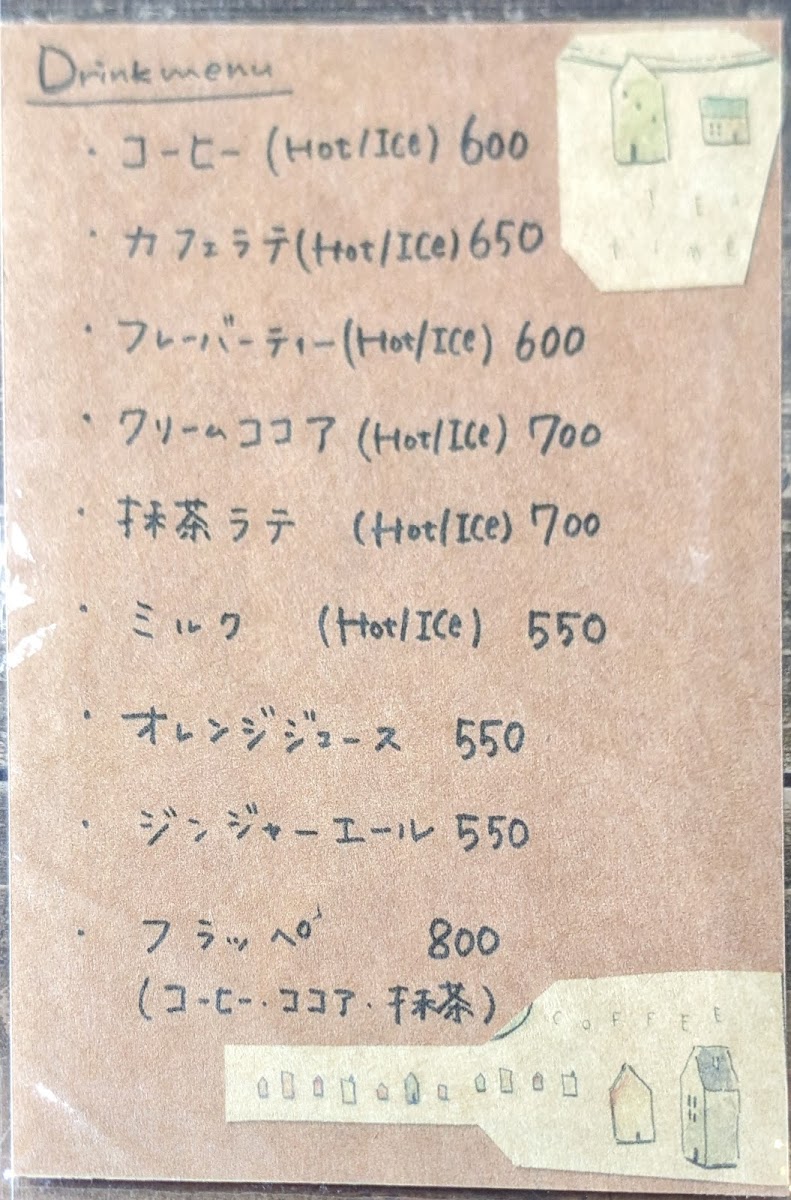 Drink menu
・コーヒー (Hot/ICe) 600
・カフェラテ(Hot/ICe) 650
・フレーバーティー(Hot/ICe) 600
・クリームココア (Hot/ICe) 700
・抹茶ラテ (Hot/ICe) 700
・ミルク (Hot/ICe) 550
・オレンジジュース 550
・ジンジャーエール 550
・フラッペ 800
(コーヒー・ココア・抹茶)
COFFEE